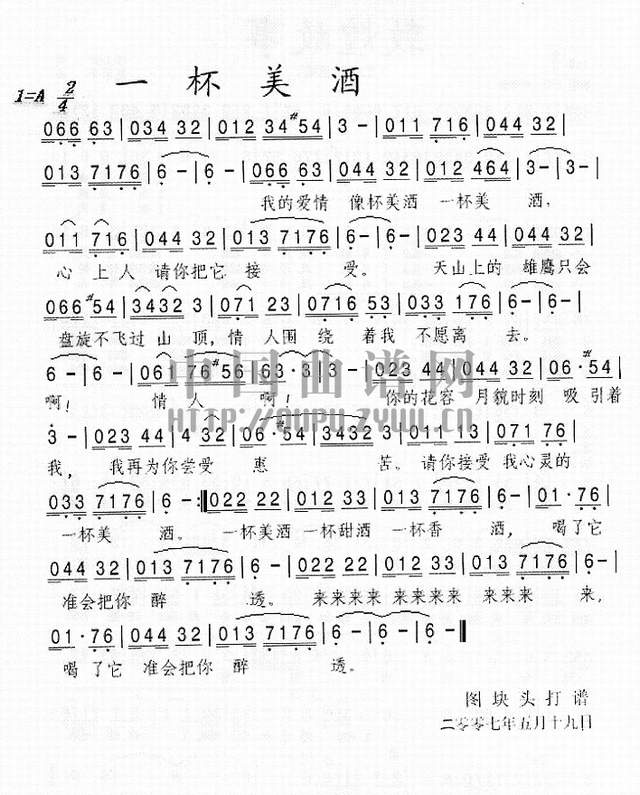 一杯美酒
1=A 2/4
066 63|034 32|012 34#54|3-|011 716|044 32|
013 7176|6-|6-|011 716|044 32|012 464|3-|3-|
我的爱情 像杯美酒 一杯美 酒,
011 716|044 32|013 7176|6-|6-|023 44|044 32|
心上人 请你把它 接 受。 天山上的 雄鹰只会
066#54|3432 3|071 23|0716 53|033 176|6-|6-|
盘旋不飞过 山 顶,情 人围 绕 着我 不愿离 去。
6-|6-|061 76#56|63·3|3-|023 44|044 32|06·#54|
啊! 情 人 啊! 你的花容 月貌时刻 吸引着
3-|023 44|4 32|06·#54|3432 3|011 13|071 76|
我, 我再为你尝受 惠 苦。请你接受 我心灵的
033 7176|6-:‖022 22|012 33|013 7176|6-|01·76|
一杯美 酒。 一杯美酒 一杯甜酒 一杯香 酒, 喝了它
044 32|013 7176|6-|022 22|044 32|013 7176|6-|
准会把你 醉 透。 来来来来 来来来来 来来来 来,
01·76|044 32|013 7176|6-|6-|6-‖
喝了它 准会把你 醉 透。
中国曲谱网
HTTP://QUPU.ZYWW.CN
图块头打谱
二零零七年五月十九日